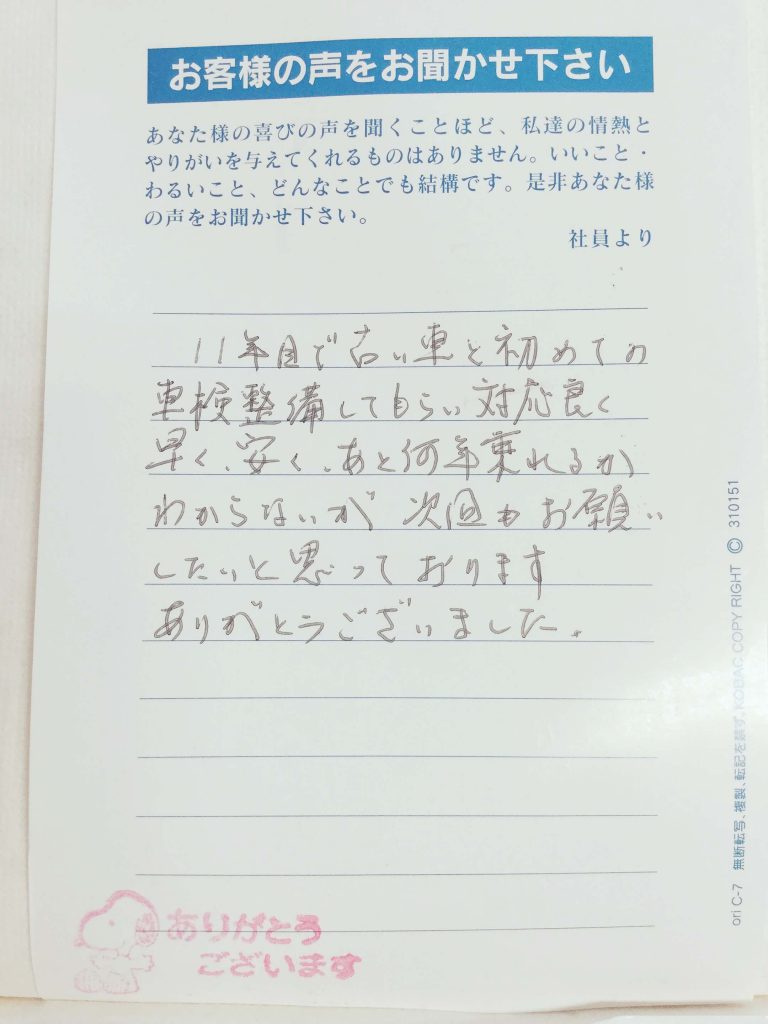 お客様の声をお聞かせ下さい
あなた様の喜びの声を聞くことほど、私達の情熱と
やりがいを与えてくれるものはありません。いいこと・
わるいこと、どんなことでも結構です。是非あなた様
の声をお聞かせ下さい。
社員より
11年目で古い車と初めての
車検整備してもらい対応良く
早く、安く、あと何年乗れるか
わからないが 次回もお願い
したいと思っております
ありがとうございました。
ありがとう
ございます
ori C-7 無断転写、複製、転記を禁ず。KOBAC COPY RIGHT © 310151